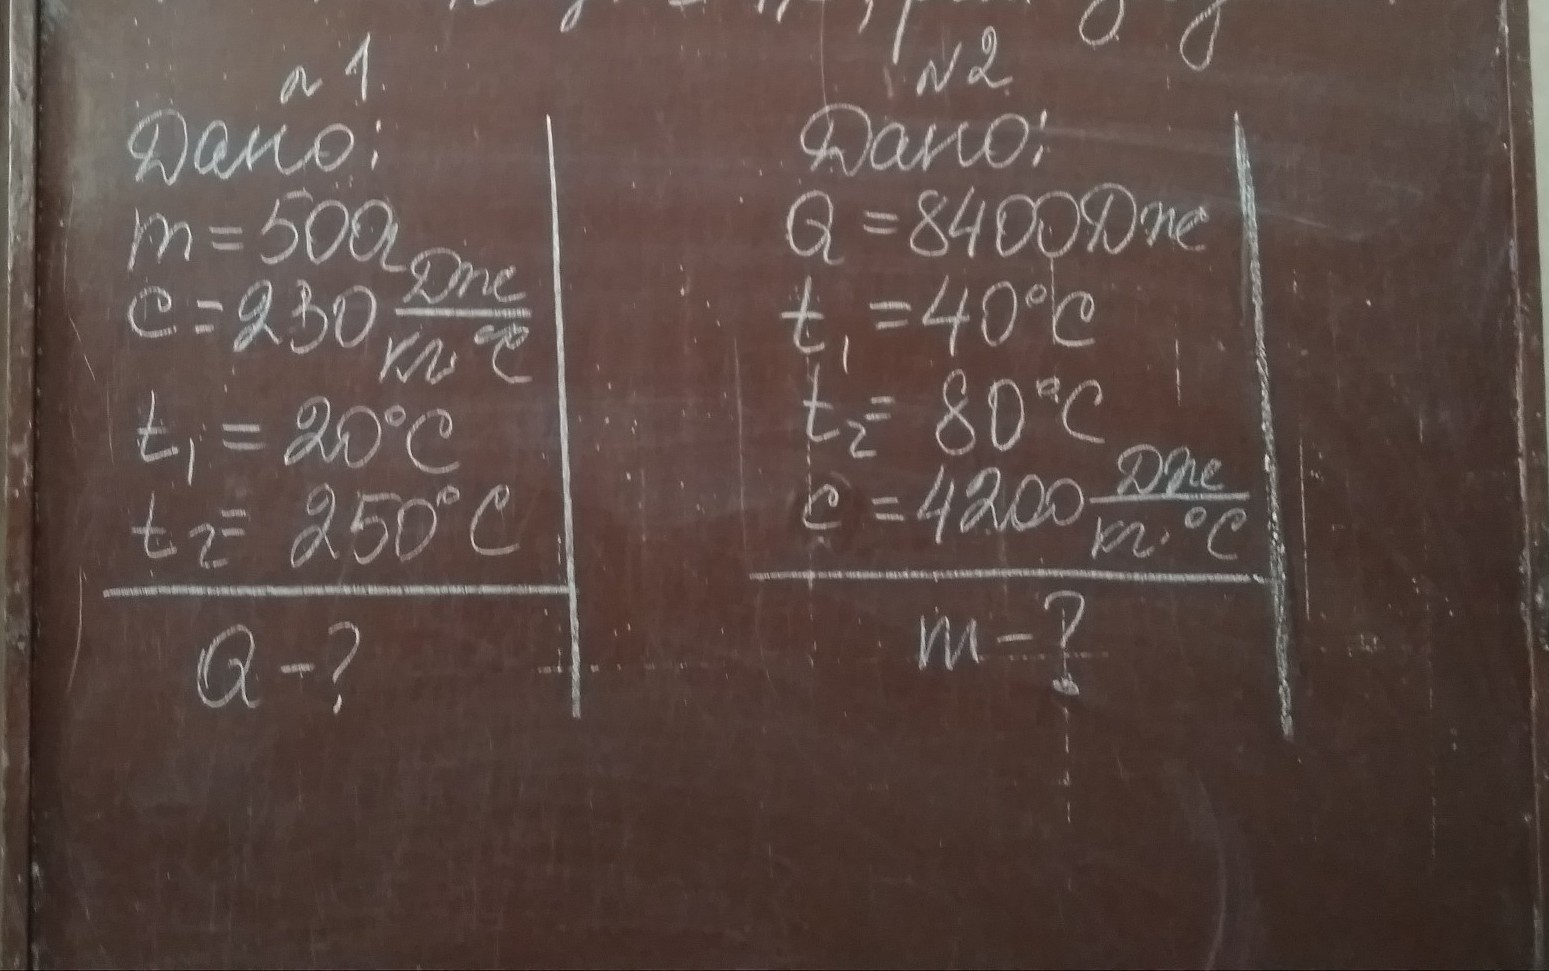 №1
Дано:
m = 500г
c = 230 Дж/кг·°C
t₁ = 20°C
t₂ = 250°C
Q - ?
№2
Дано:
Q = 8400Дж
t₁ = 40°C
t₂ = 80°C
c = 4200 Дж/кг·°C
m - ?